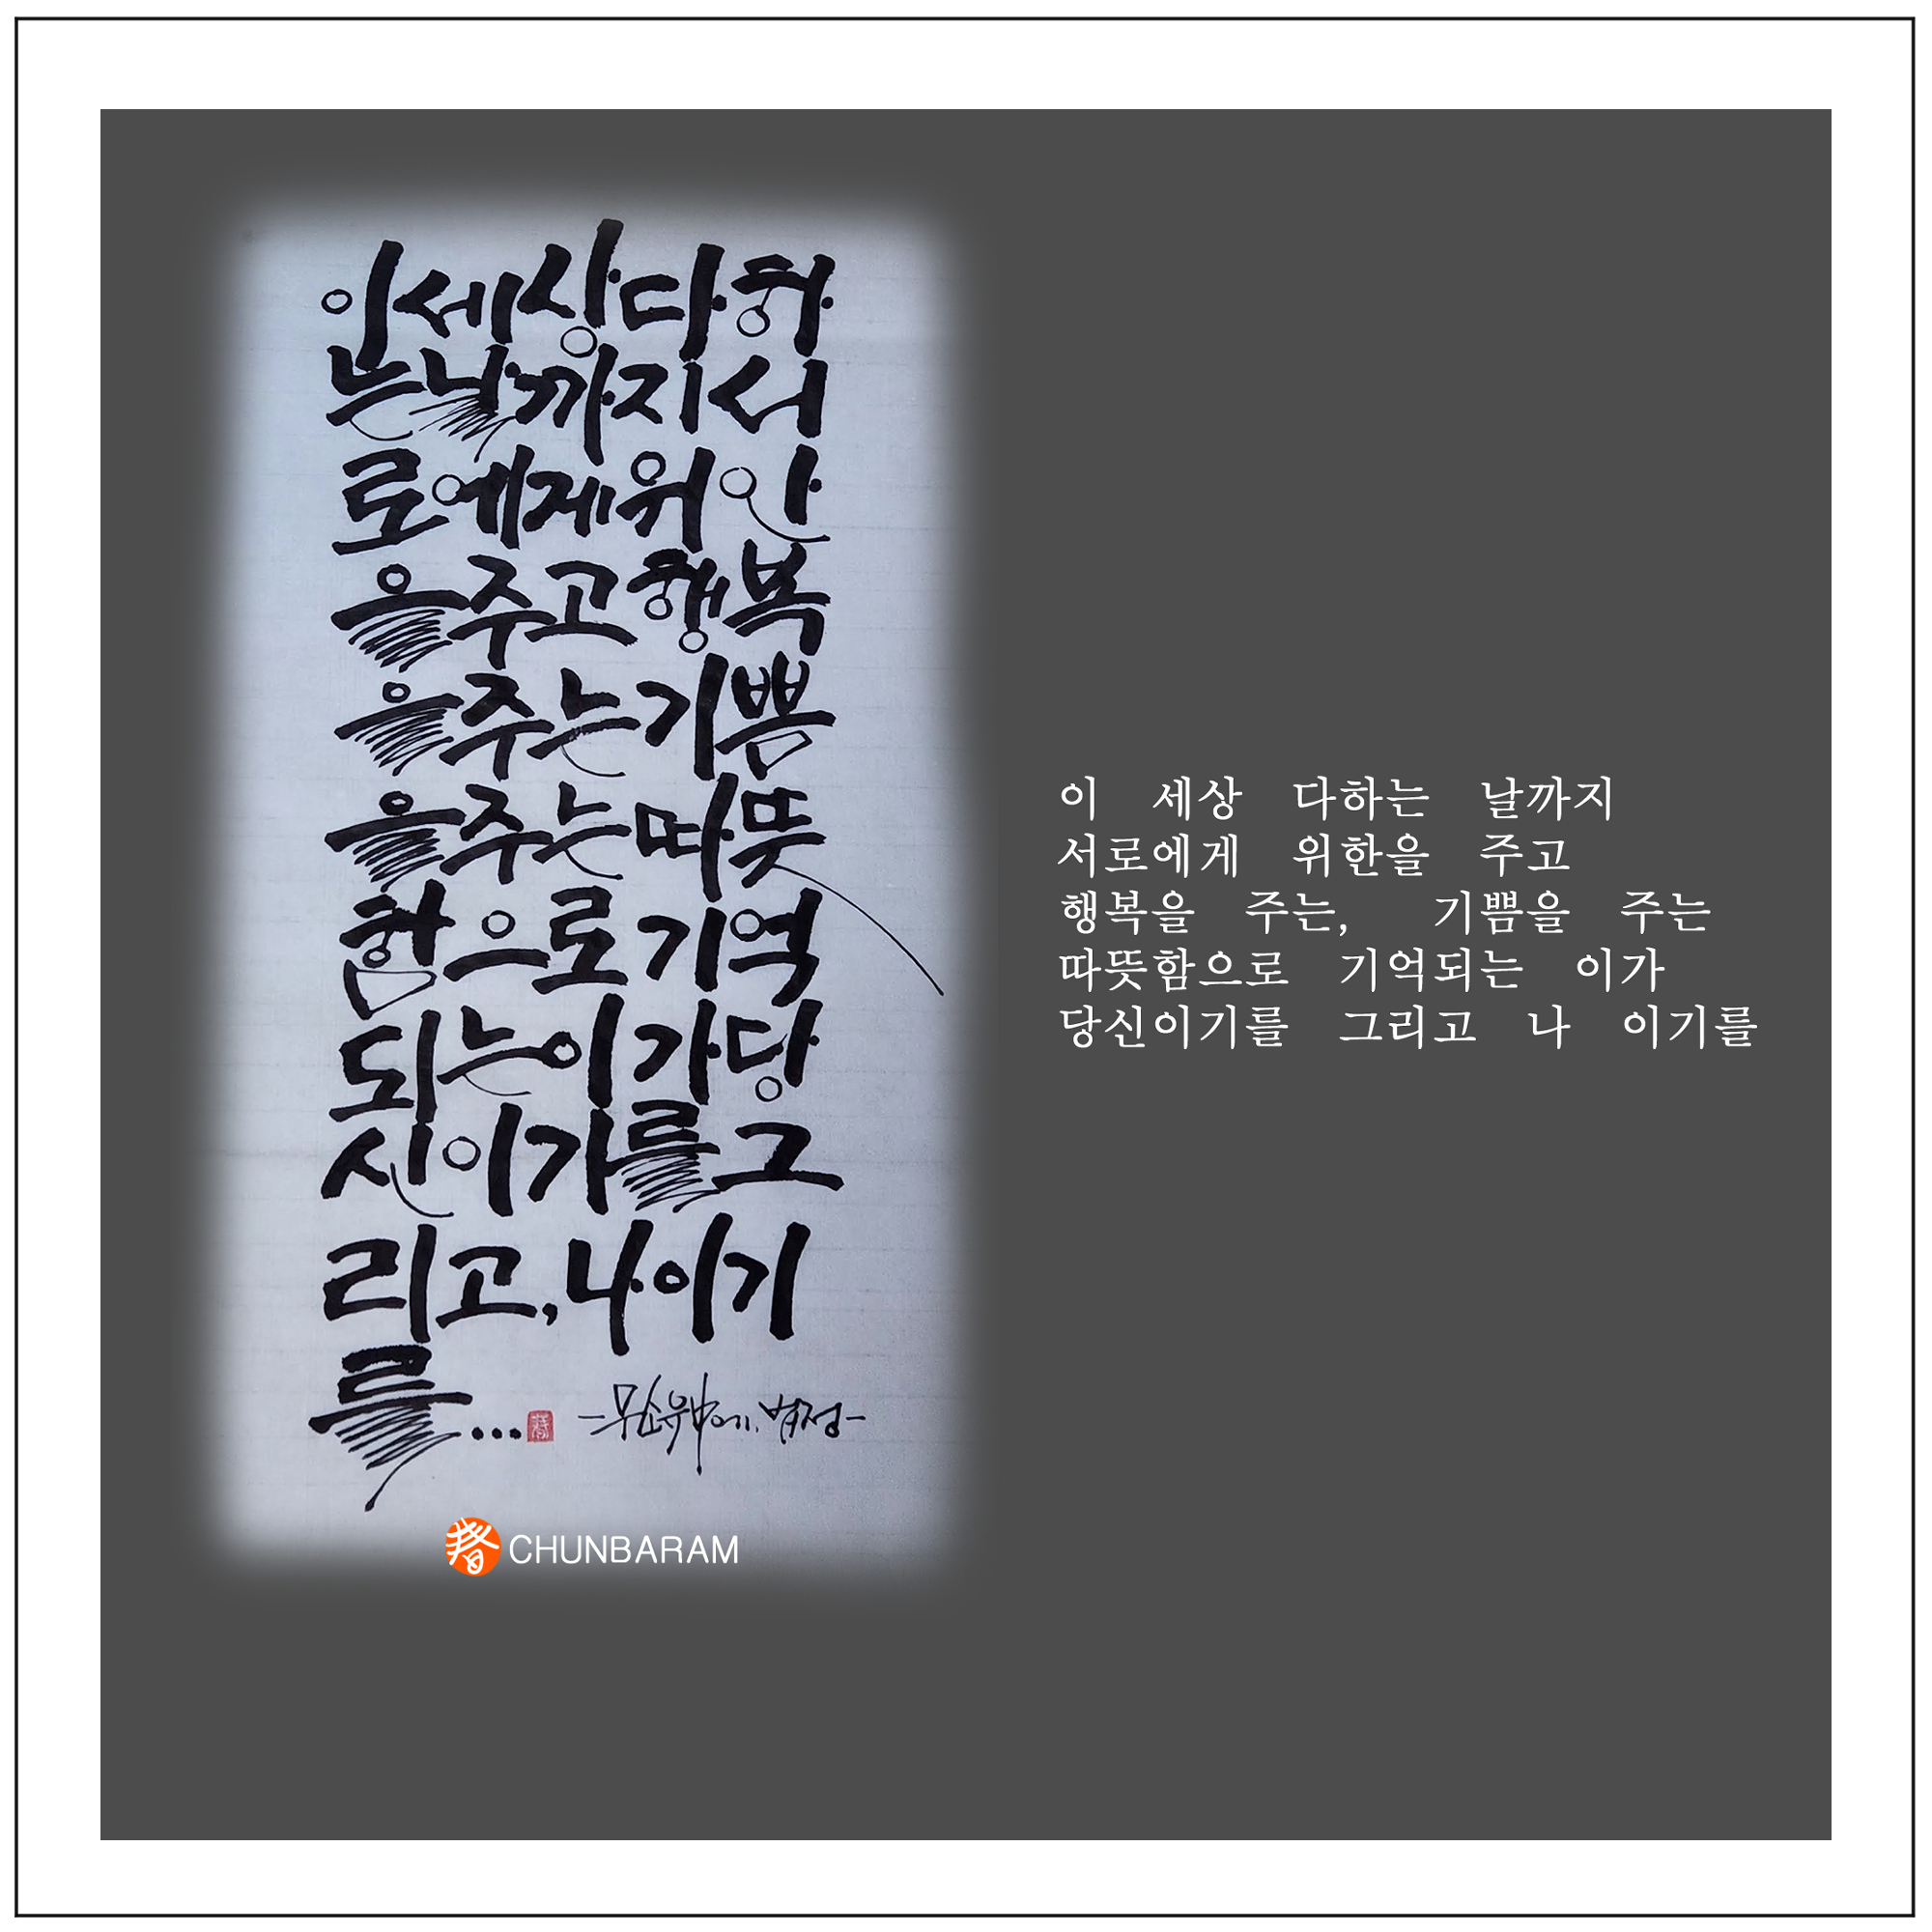 이세상다하
는날까지서
로에게위안
을주고행복
을주는기쁨
을주는따뜻
함으로기억
되는이가당
신이기를그
리고,나이기
를...
春 CHUNBARAM
이 세상 다하는 날까지
서로에게 위한을 주고
행복을 주는, 기쁨을 주는
따뜻함으로 기억되는 이가
당신이기를 그리고 나 이기를